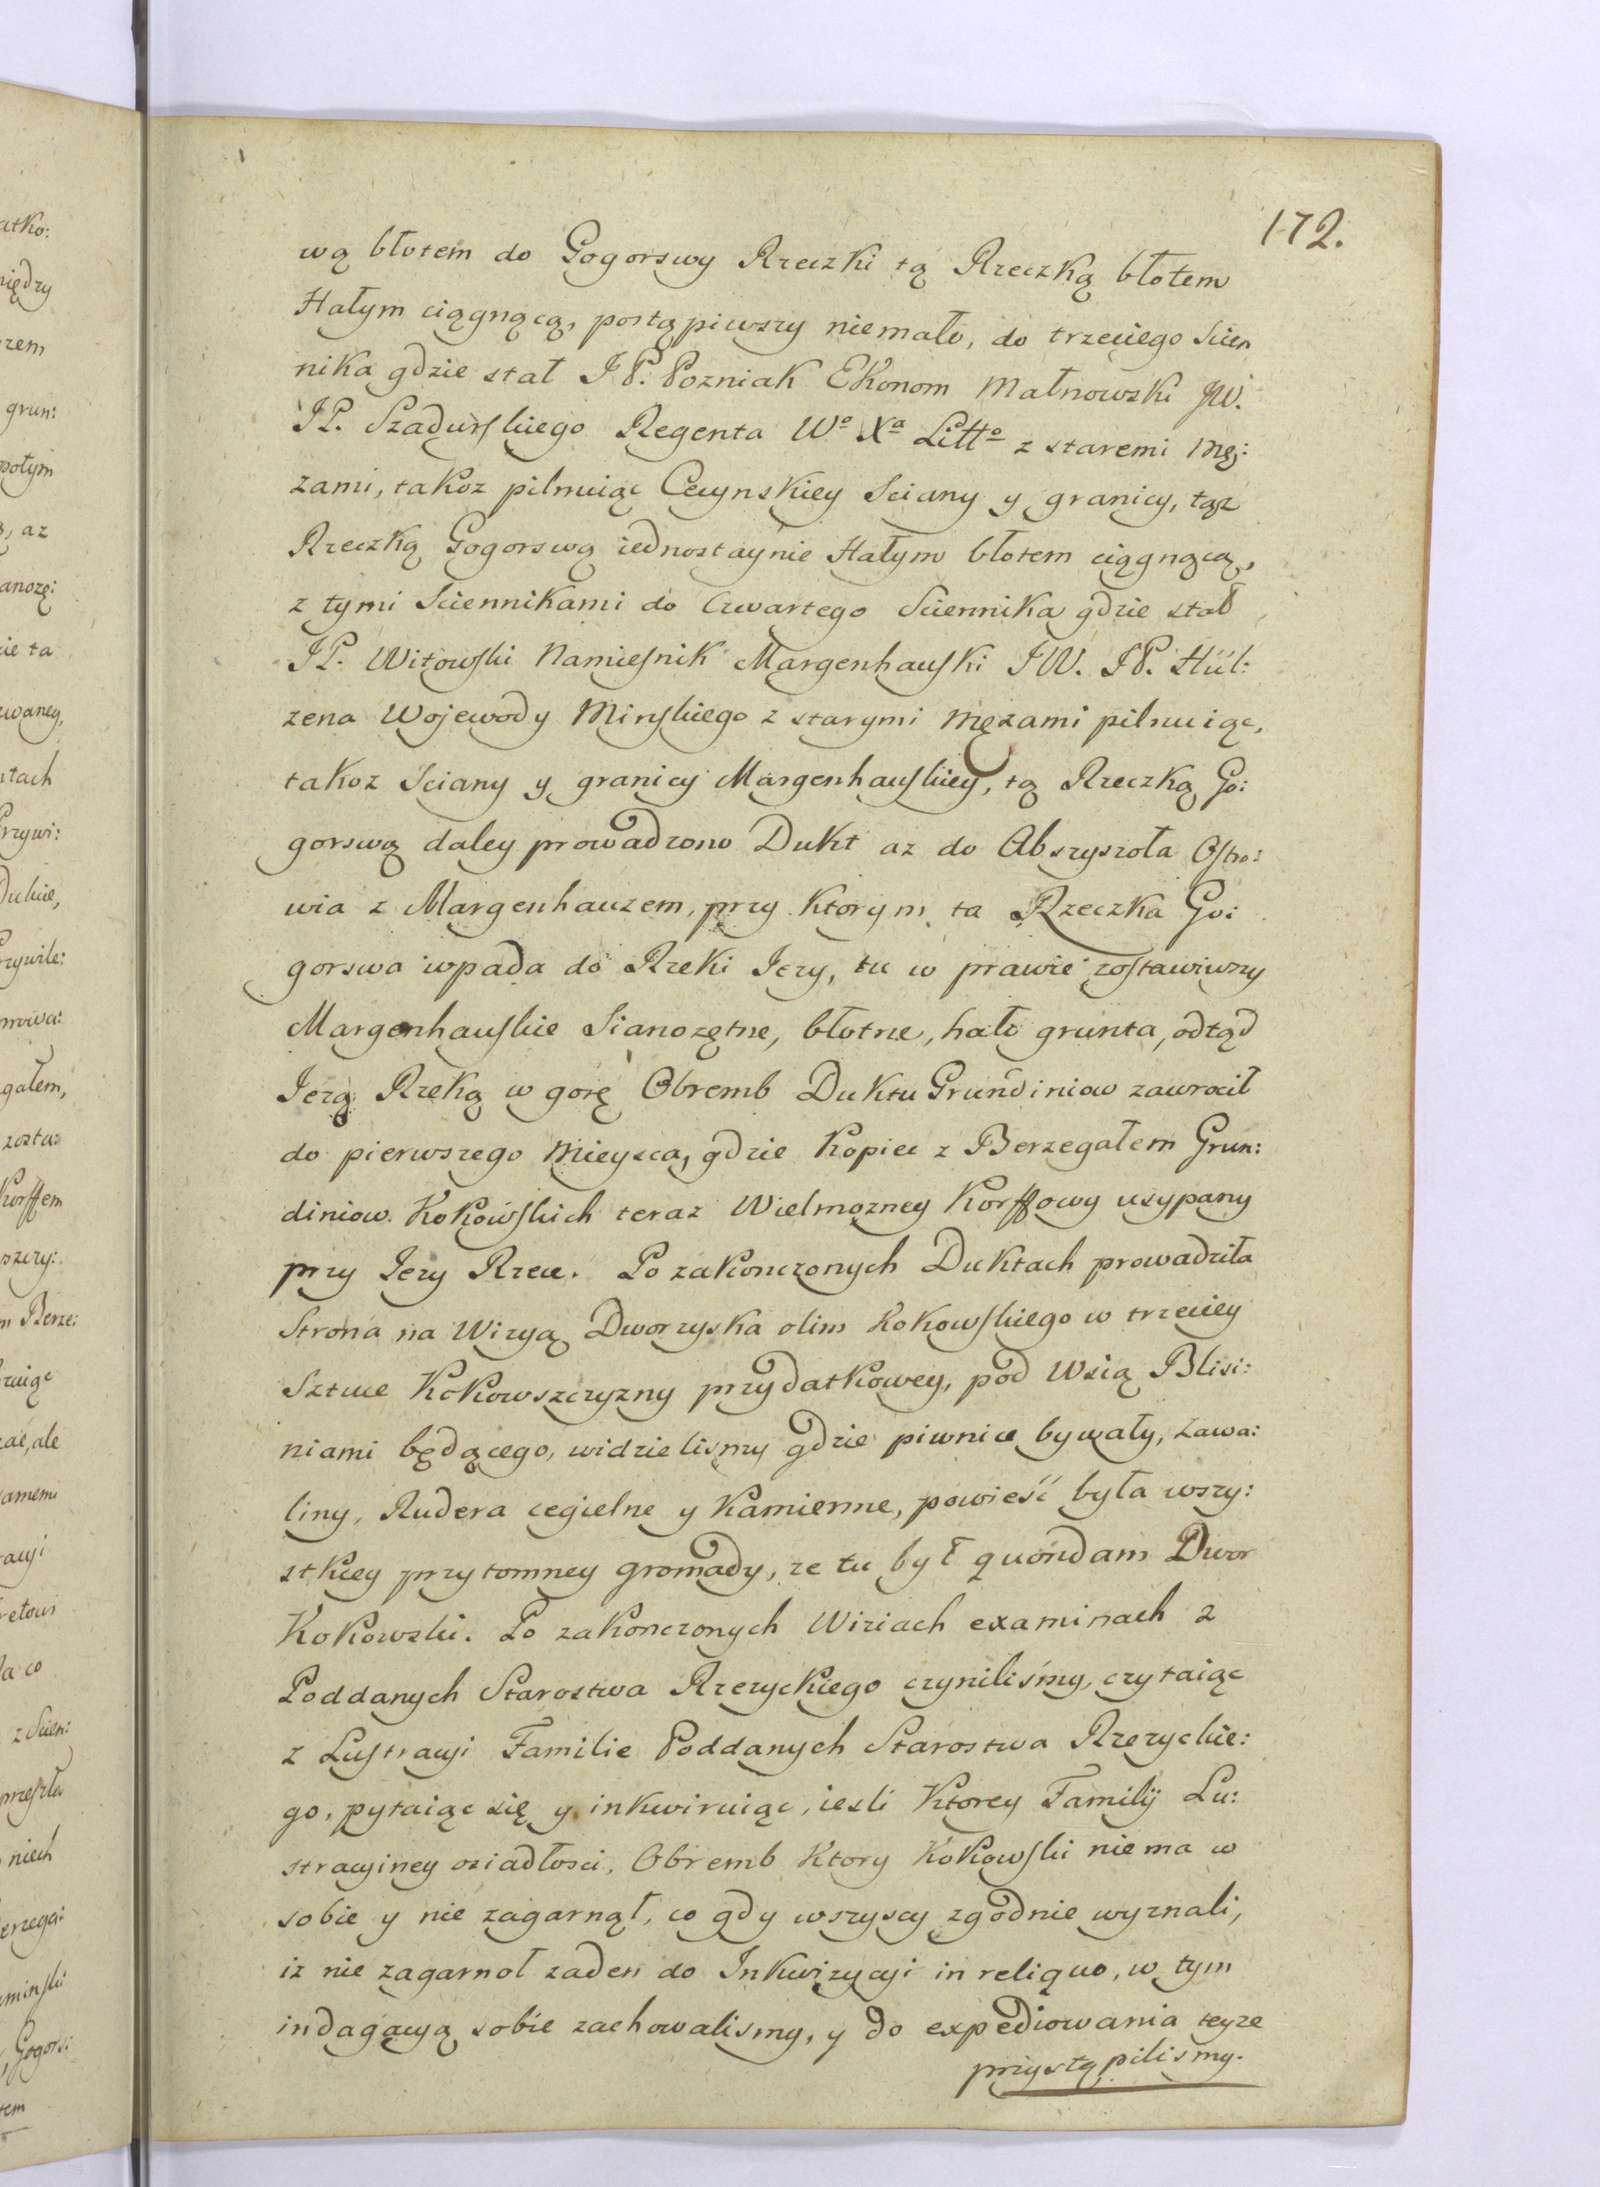 172.
wą błotem do Gogorswy Rzeczki tą Rzeczką błotem
Hałym ciągnącą, postąpiwszy niemało, do trzeciego Scien
nika gdzie stał J P. Pozniak Ekonom Małnowski JW.
JP. Szadurskiego Regenta Wº Xª Littº z staremi Mę:
zami, takoz pilnuiąc Cecynskiey Sciany y granicy, tąz
Rzeczką Gogorswą iednostaynie Hałym błotem ciągnącą,
z tymi Sciennikami do Czwartego Sciennika gdzie stał
JP. Witowski Namiesnik Margenhauski JW. JP. Hül:
zena Wojewody Minskiego z starymi Mężami pilnuiąc,
takoz Sciany y granicy Margenhauskiey, tą Rzeczką Go:
gorswą daley prowadzono Dukt az do Abszyszoła Ostro:
wia z Margenhauzem, przy ktorym ta Rzeczka Go:
gorswa wpada do Rzeki Jezy, tu w prawie zostawiwszy
Margenhauskie Sianozętne, błotne, hałe grunta, odtąd
Jezą Rzeką w gorę Obremb Duktu Grundiniow zawrocił
do pierwszego Mieysca, gdzie Kopiec z Berzegałem Grun:
diniow Kokowskich teraz Wielmozney Korffowy usypany
przy Jezy Rzece. Po zakonczonych Duktach prowadziła
Strona na Wizyą Dworzyska olim Kokowskiego w trzeciey
Sztuce Kokowszczyzny przydatkowey, pod Wsią Blisi:
niami będącego, widzielismy gdzie piwnice bywały, zawa:
liny, Rudera cegielne y Kamienne, powieść była wszy:
stkiey przytomney gromady, ze tu był quondam Dwor
Kokowski. Po zakonczonych Wiziach examinach z
Poddanych Starostwa Rzezyckiego czyniliśmy, czytaiąc
z Lustracyi Familie Poddanych Starostwa Rzezyckie:
go, pytaiąc się y inkwiruiąc, iesli Ktorey Familij Lu:
stracyiney osiadłosci, Obremb Ktory Kokowski niema w
sobie y nie zagarnął, co gdy wszyscy zgodnie wyznali,
iz nie zagarnoł zaden do Inkwizycyi in reliquo, w tym
indagacyą sobie zachowalismy, y do expediowania teyze
przystąpilismy.